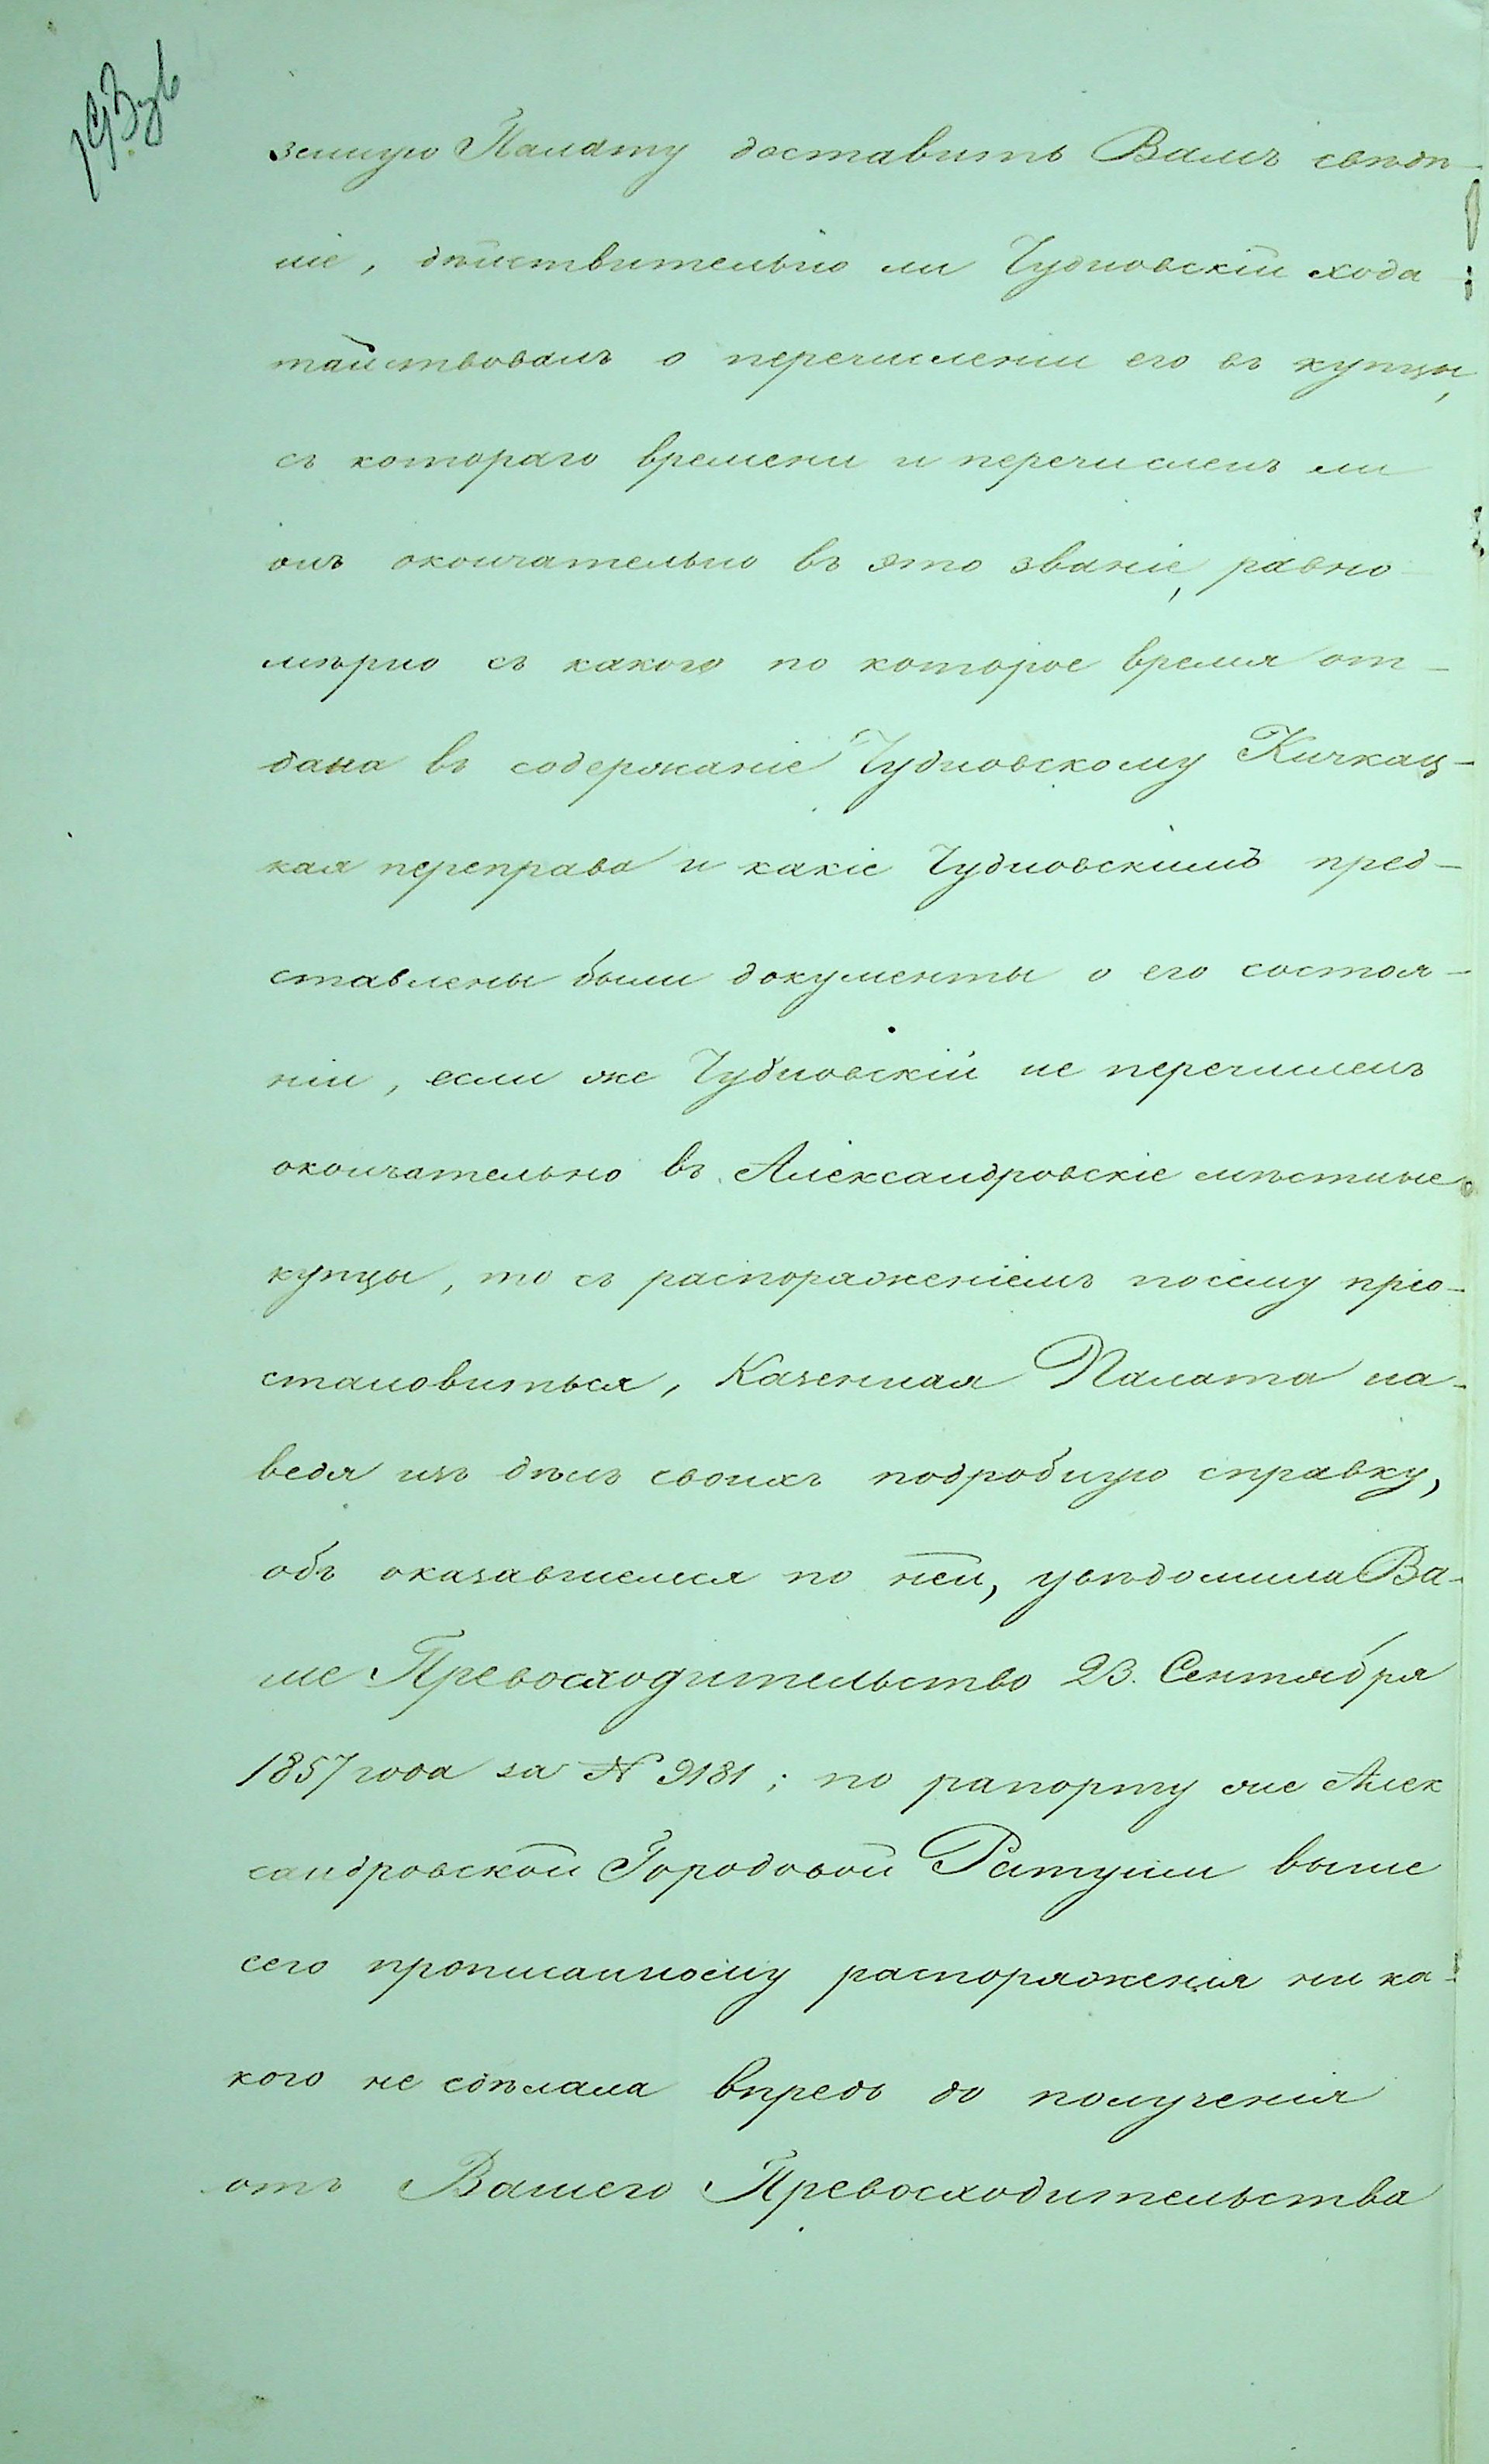 зенную Палату доставить Вамъ свѣдѣ-
ніе, дѣйствительно ли Чудновскій хода
тайствовалъ о перечисленіи его въ купцы,
съ котораго времени и перечисленъ ли
онъ окончательно въ это званіе, равно
мѣрно съ какого по которое время от-
дана въ содержаніе Чудновскому Кичкац-
кая переправа и какіе Чудновскимъ пред-
ставлены были документы о его состоя-
ніи, если же Чудновскій не перечисленъ
окончательно въ Александровскіе мѣстные
купцы, то съ распоряженіемъ посему пріо-
становиться, Казенная Палата на-
ведя изъ дѣлъ своихъ подробную справку,
объ оказавшемся по ней, увѣдомила Ва-
ше Превосходительство 23. Сентября
1857 года за № 9181; по рапорту же Алек
сандровской Городовой Ратуши выше
сего прописанному распоряженія ни ка-
кого не сдѣлала впредь до полученія
отъ Вашего Превосходительства